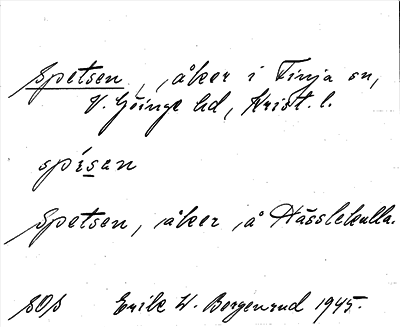 Spetsen, åker i Finja sn,
V. Göinge hd, Krist. l.
spesan
Spetsen, åker å Hässlekulla.
sOs Erik W. Bergenrud 1945.